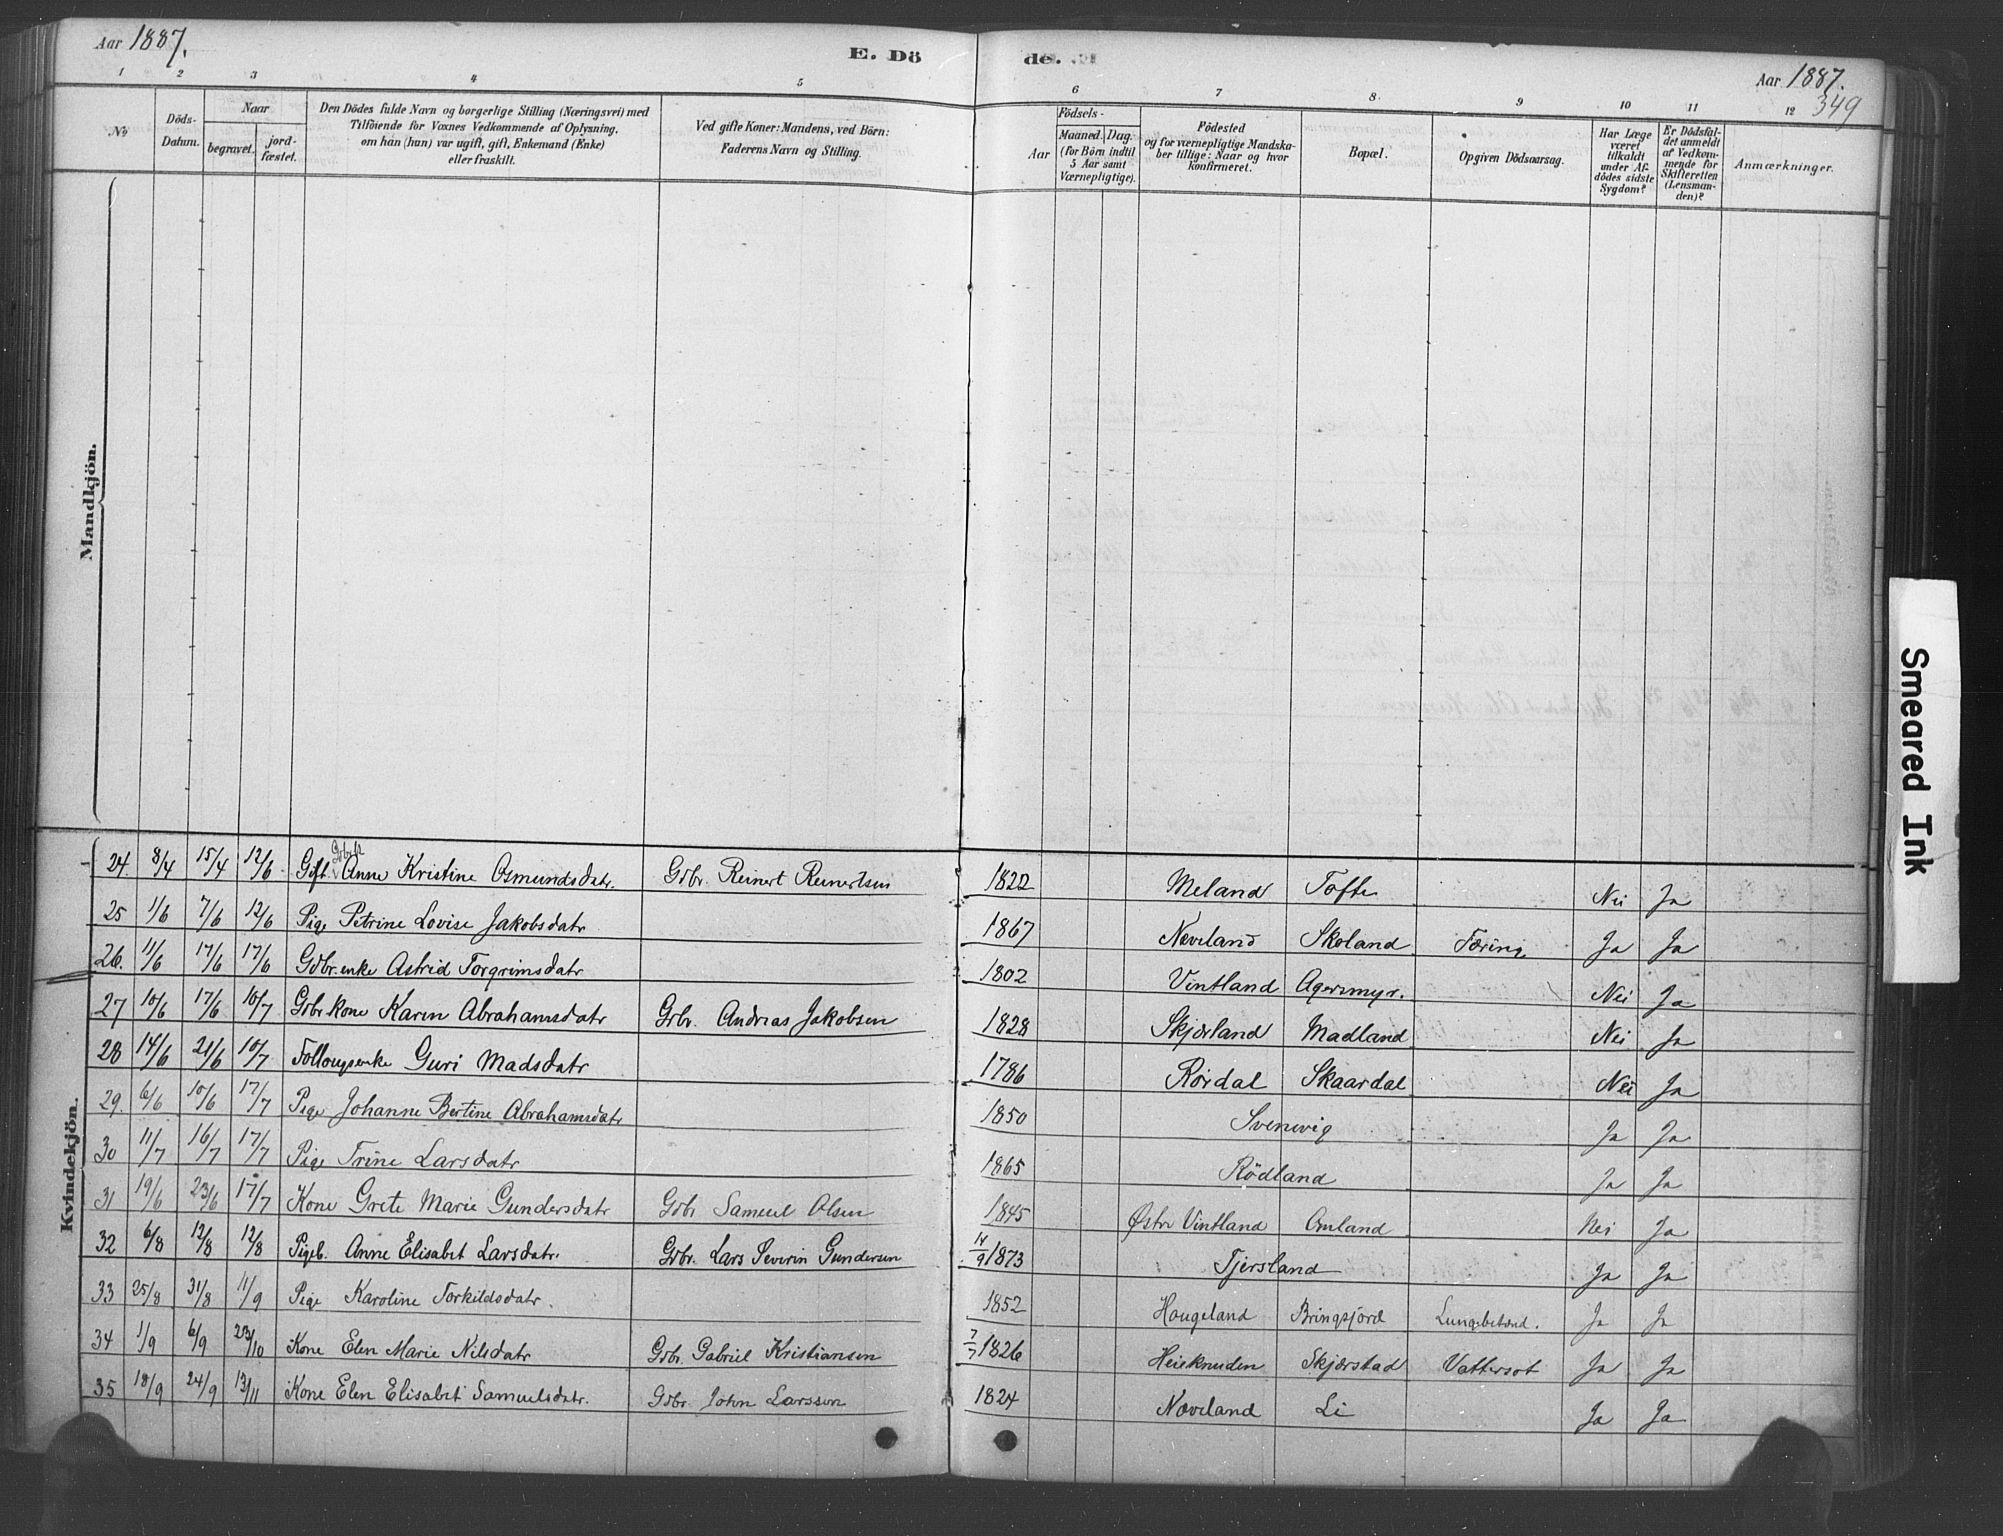 Aar 1887.
E. Döde.
Aar 1887.
349
1 2 3 4 5 6 7 8 9 10 11 12
No
Döds-Datum.
Naar
begravet.
jord-fæstet.
Den Dödes fulde Navn og borgerlige Stilling (Næringsvei) med
Tilföiende for Voxnes Vedkommende af Oplysning,
om han (hun) var ugift, gift, Enkemand (Enke)
eller fraskilt.
Ved gifte Koner: Mandens, ved Börn:
Faderens Navn og Stilling.
Födsels-
Aar
Maaned.
Dag.
(for Börn indtil
5 Aar samt
Værnepligtige).
Födested
og for værnepligtige Mandska-
ber tillige: Naar og hvor
konfirmeret.
Bopæl.
Opgiven Dödsaarsag.
Har Læge
været
tilkaldt
under Af-
dödes sidste
Sygdom?
Er Dödsfal-
det anmeldt
af Vedkom-
mende for
Skifteretten
(Lensman-
den)?
Anmærkninger.
Mandkjön.
Kvindekjön.
24. 8/4 15/4 12/6 Gift Anne Kristine Osmundsdatr. Gdbr. Reinert Reinertsen 1822 Meland Tofte Nei Ja
25 1/6 7/6 12/6 Pige Petrine Lovise Jakobsdatr 1867 Næveland Skoland Tæring Ja Ja
26. 11/6 17/6 17/6 Gdbr.enke Astrid Torgrimsdatr 1802 Vintland Agersmyr. Nei Ja
27 10/6 17/6 10/7 Gdbr kone Karen Abrahamsdatr Gdbr. Andreas Jakobsen 1828 Skjærland Madland Nei Ja
28 14/6 21/6 10/7 Guri Madsdatr 1786 Rørdal Skaardal Nei Ja
29. 6/6 10/6 17/7 Pige Johanne Bertine Abrahamsdatr 1850 Svenevig Ja Ja
30 11/7 16/7 17/7 Pige Trine Larsdatr 1865 Rödland Ja Ja
31 19/6 23/6 17/7 Kone Grete Marie Gundersdatr Gdbr Samuel Olsen 1845 Østre Vintland Omland Nei Ja
32 6/8 12/8 12/8 Pigeb. Anne Elisabet Larsdatr. Gdbr. Lars Severin Gundersen 14/9 1873 Tjersland Ja Ja
33 25/8 31/8 11/9 Pige Karoline Torkildsdatr. 1852 Haugeland Bringsjord Lungebetænd. Ja Ja
34 1/9 6/9 23/10 Kone Elen Marie Nilsdatr Gdbr. Gabriel Kristiansen 7/7 1826 Heieknuden Skjærstad Vattersot Ja Ja
35 18/9 24/9 13/11 Kone Elen Elisabet Samuelsdatr. Gdbr. John Larssen 1824 Næveland Li Ja Ja
Smeared Ink